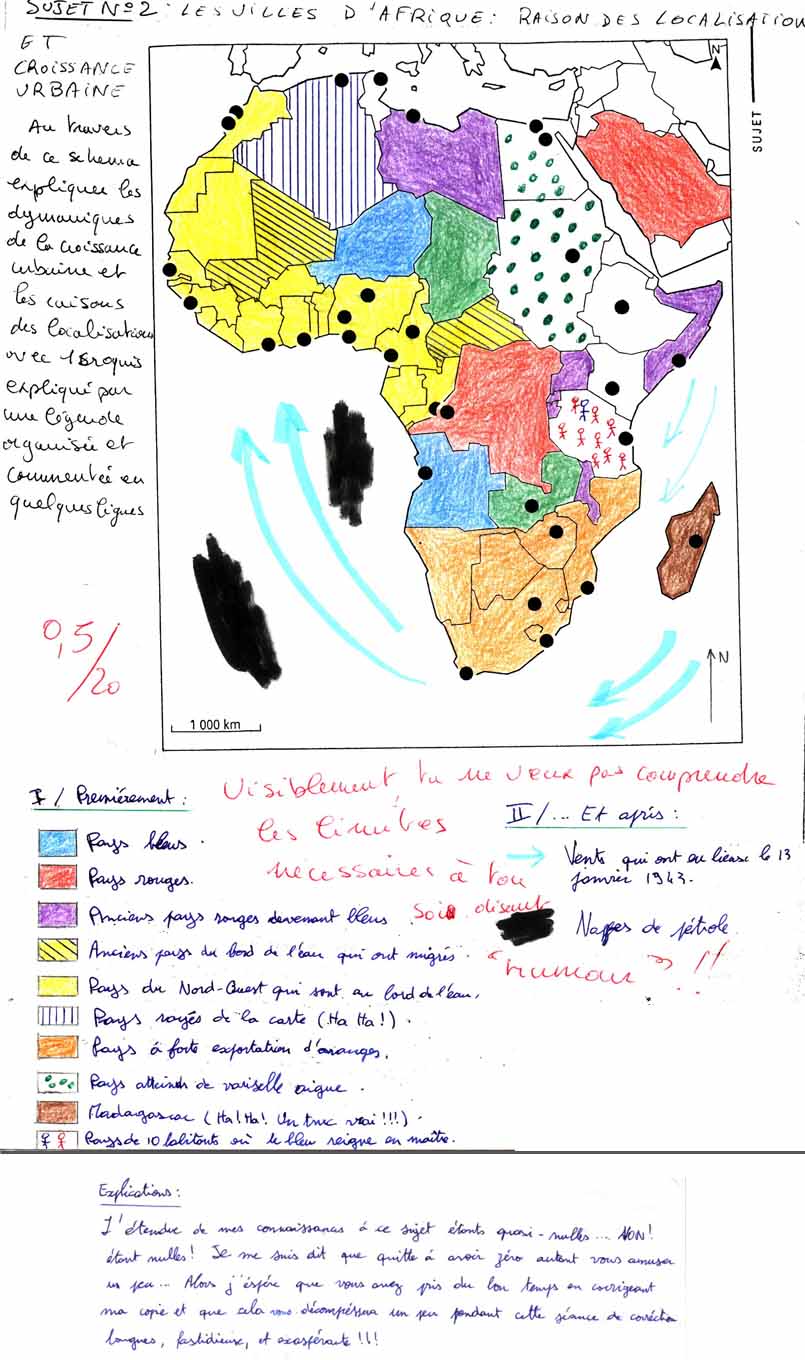 SUJET N°2 : LES VILLES D'AFRIQUE : RAISON DES LOCALISATION
ET
CROISSANCE
URBAINE
Au travers
de ce schema
expliquer les
dynamiques
de la croissance
urbaine et
les raisons
des localisations
avec 1 croquis
expliqué par
une légende
organisée et
commentée en
quelques lignes
N
SUJET
N
1 000 km
0,5/20
Visiblement, tu ne veux pas comprendre
les limites
nécessaires à ton
soi disant
"humour" !!
I / Premièrement :
Pays bleus.
Pays rouges.
Anciens pays rouges devenant bleus
Anciens pays du bord de l'eau qui ont migrés.
Pays du Nord-Ouest qui sont au bord de l'eau.
Pays rayés de la carte (Ha Ha!).
Pays à forte exportation d'oranges.
Pays atteinds de variselle aigue.
Madagascar (Ha! Ha! Un truc vrai !!!).
Pays de 10 habitants où le bleu reigne en maître.
II / ... Et après :
Vents qui ont eu lieu le 13
janvier 1943.
Nappes de pétrole.
Explications :
L'étendue de mes connaissances à ce sujet étants quasi-nulles... NON!
étant nulles! Je me suis dit que quitte à avoir zéro autant vous amuser
un peu... Alors j'éspére que vous avez pris du bon temps en corrigeant
ma copie et que cela vous décompréssera un peu pendant cette séance de coréction
longues, fastidieuse, et exaspérante !!!